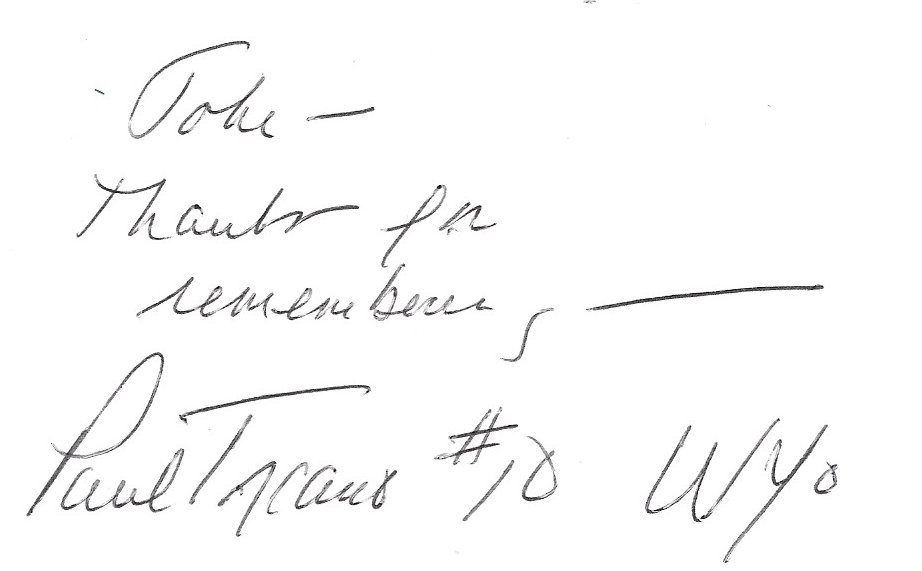 John —
Thanks for
remembering —
Paul Toscano #10 WYo